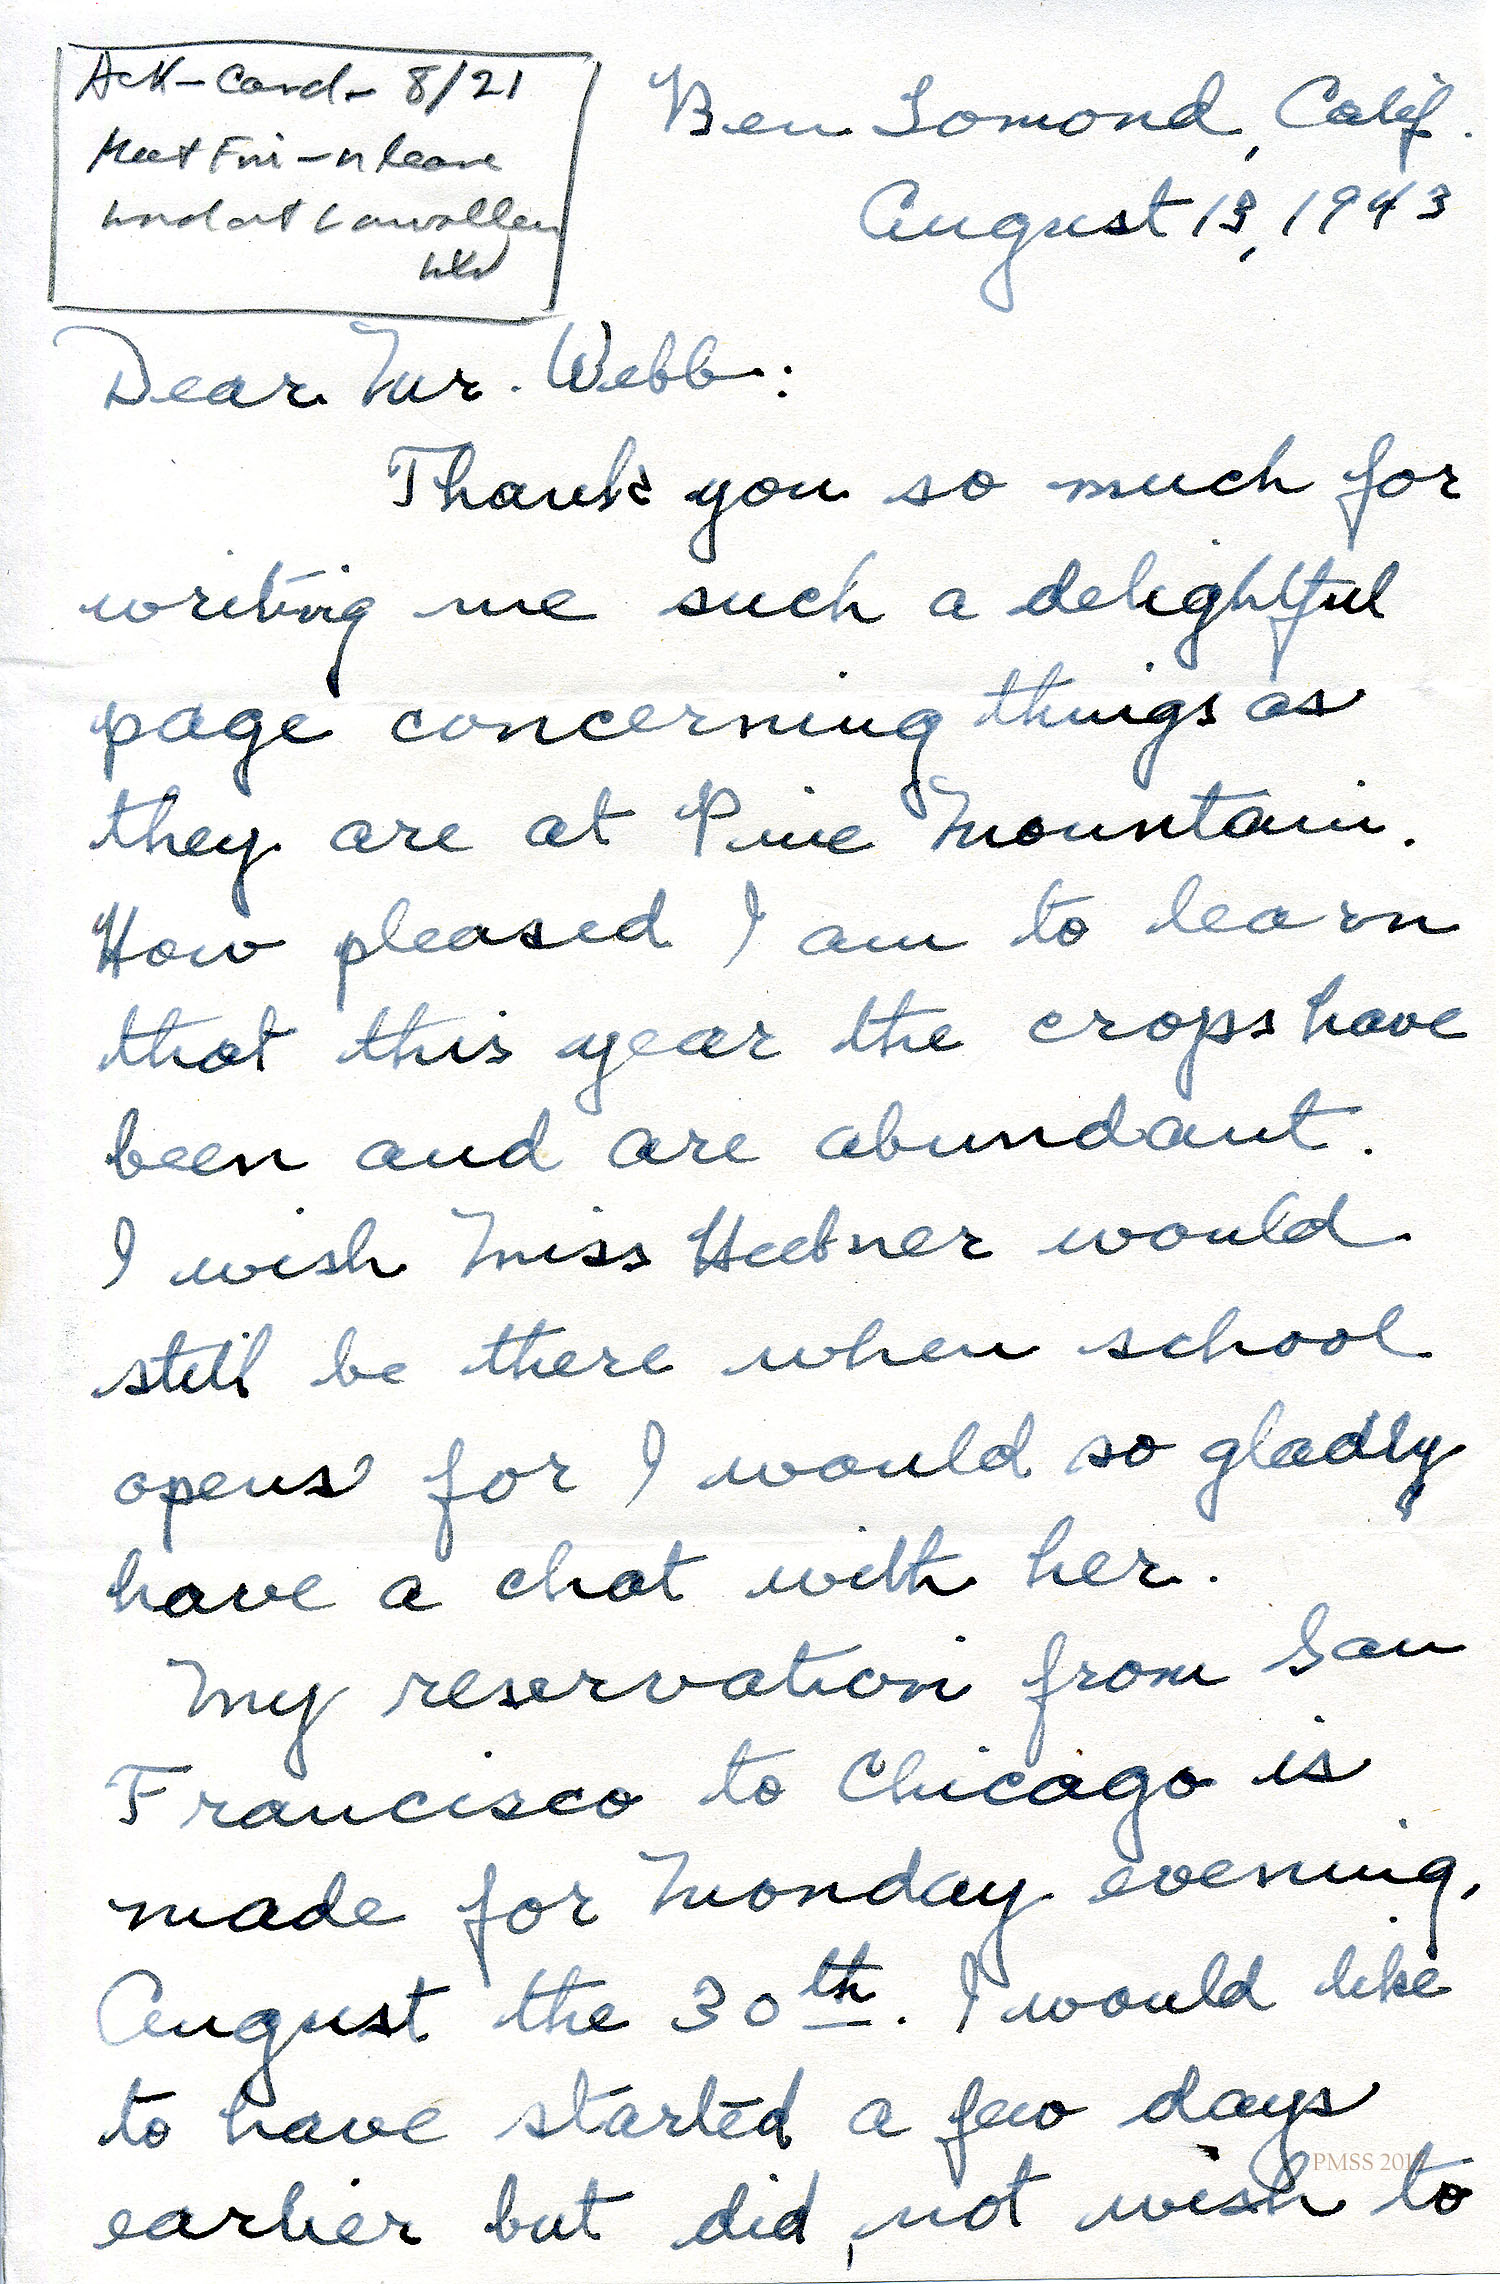 Ack-Card- 8/21
Meet
at
Ben Lomond, Calif.
August 13, 1943
Dear Mr. Webb:
Thank you so much for
writing me such a delightful
page concerning things as
they are at Pine Mountain.
How pleased I am to learn
that this year the crops have
been and are abundant.
I wish Miss would
still be there when school
opens for I would so gladly
have a chat with her.
My reservation from San
Francisco to Chicago is
made for Monday evening,
August the 30th. I would like
to have started a few days
earlier but did not wish to